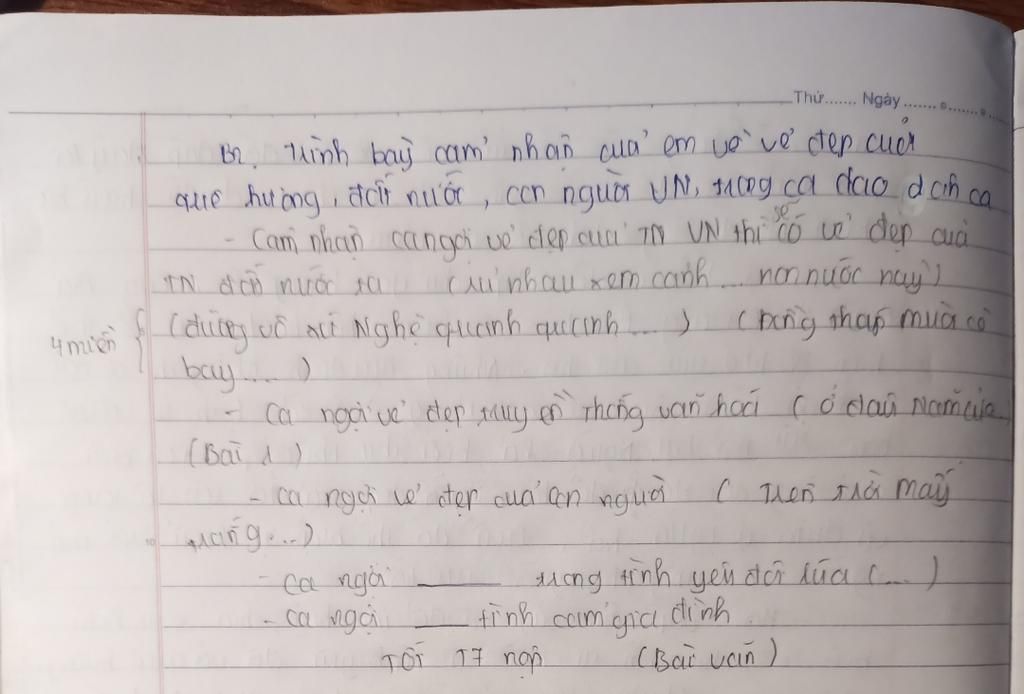 Thứ....... Ngày.......
Bt Trình bày cảm nhận của em về vẻ đẹp của
quê hương, đất nước, con người VN, trong ca dao dân ca
- Cảm nhận ca ngợi vẻ đẹp của TN VN thì sẽ có vẻ đẹp của
TN đất nước ta (rủ nhau xem cảnh... non nước này)
4 miền { (đường vô xứ Nghệ quanh quanh ...) (Đồng tháp mười cò
bay ... )
- Ca ngợi vẻ đẹp truyền thống văn hoá (Ở đâu Năm cửa
(Bài 1)
- ca ngợi vẻ đẹp của con người (Trên trời mây
trắng ...)
- ca ngợi ____ trong tình yêu đôi lứa (...)
- ca ngợi ____ tình cảm gia đình
Tối T7 nộp (Bài văn)